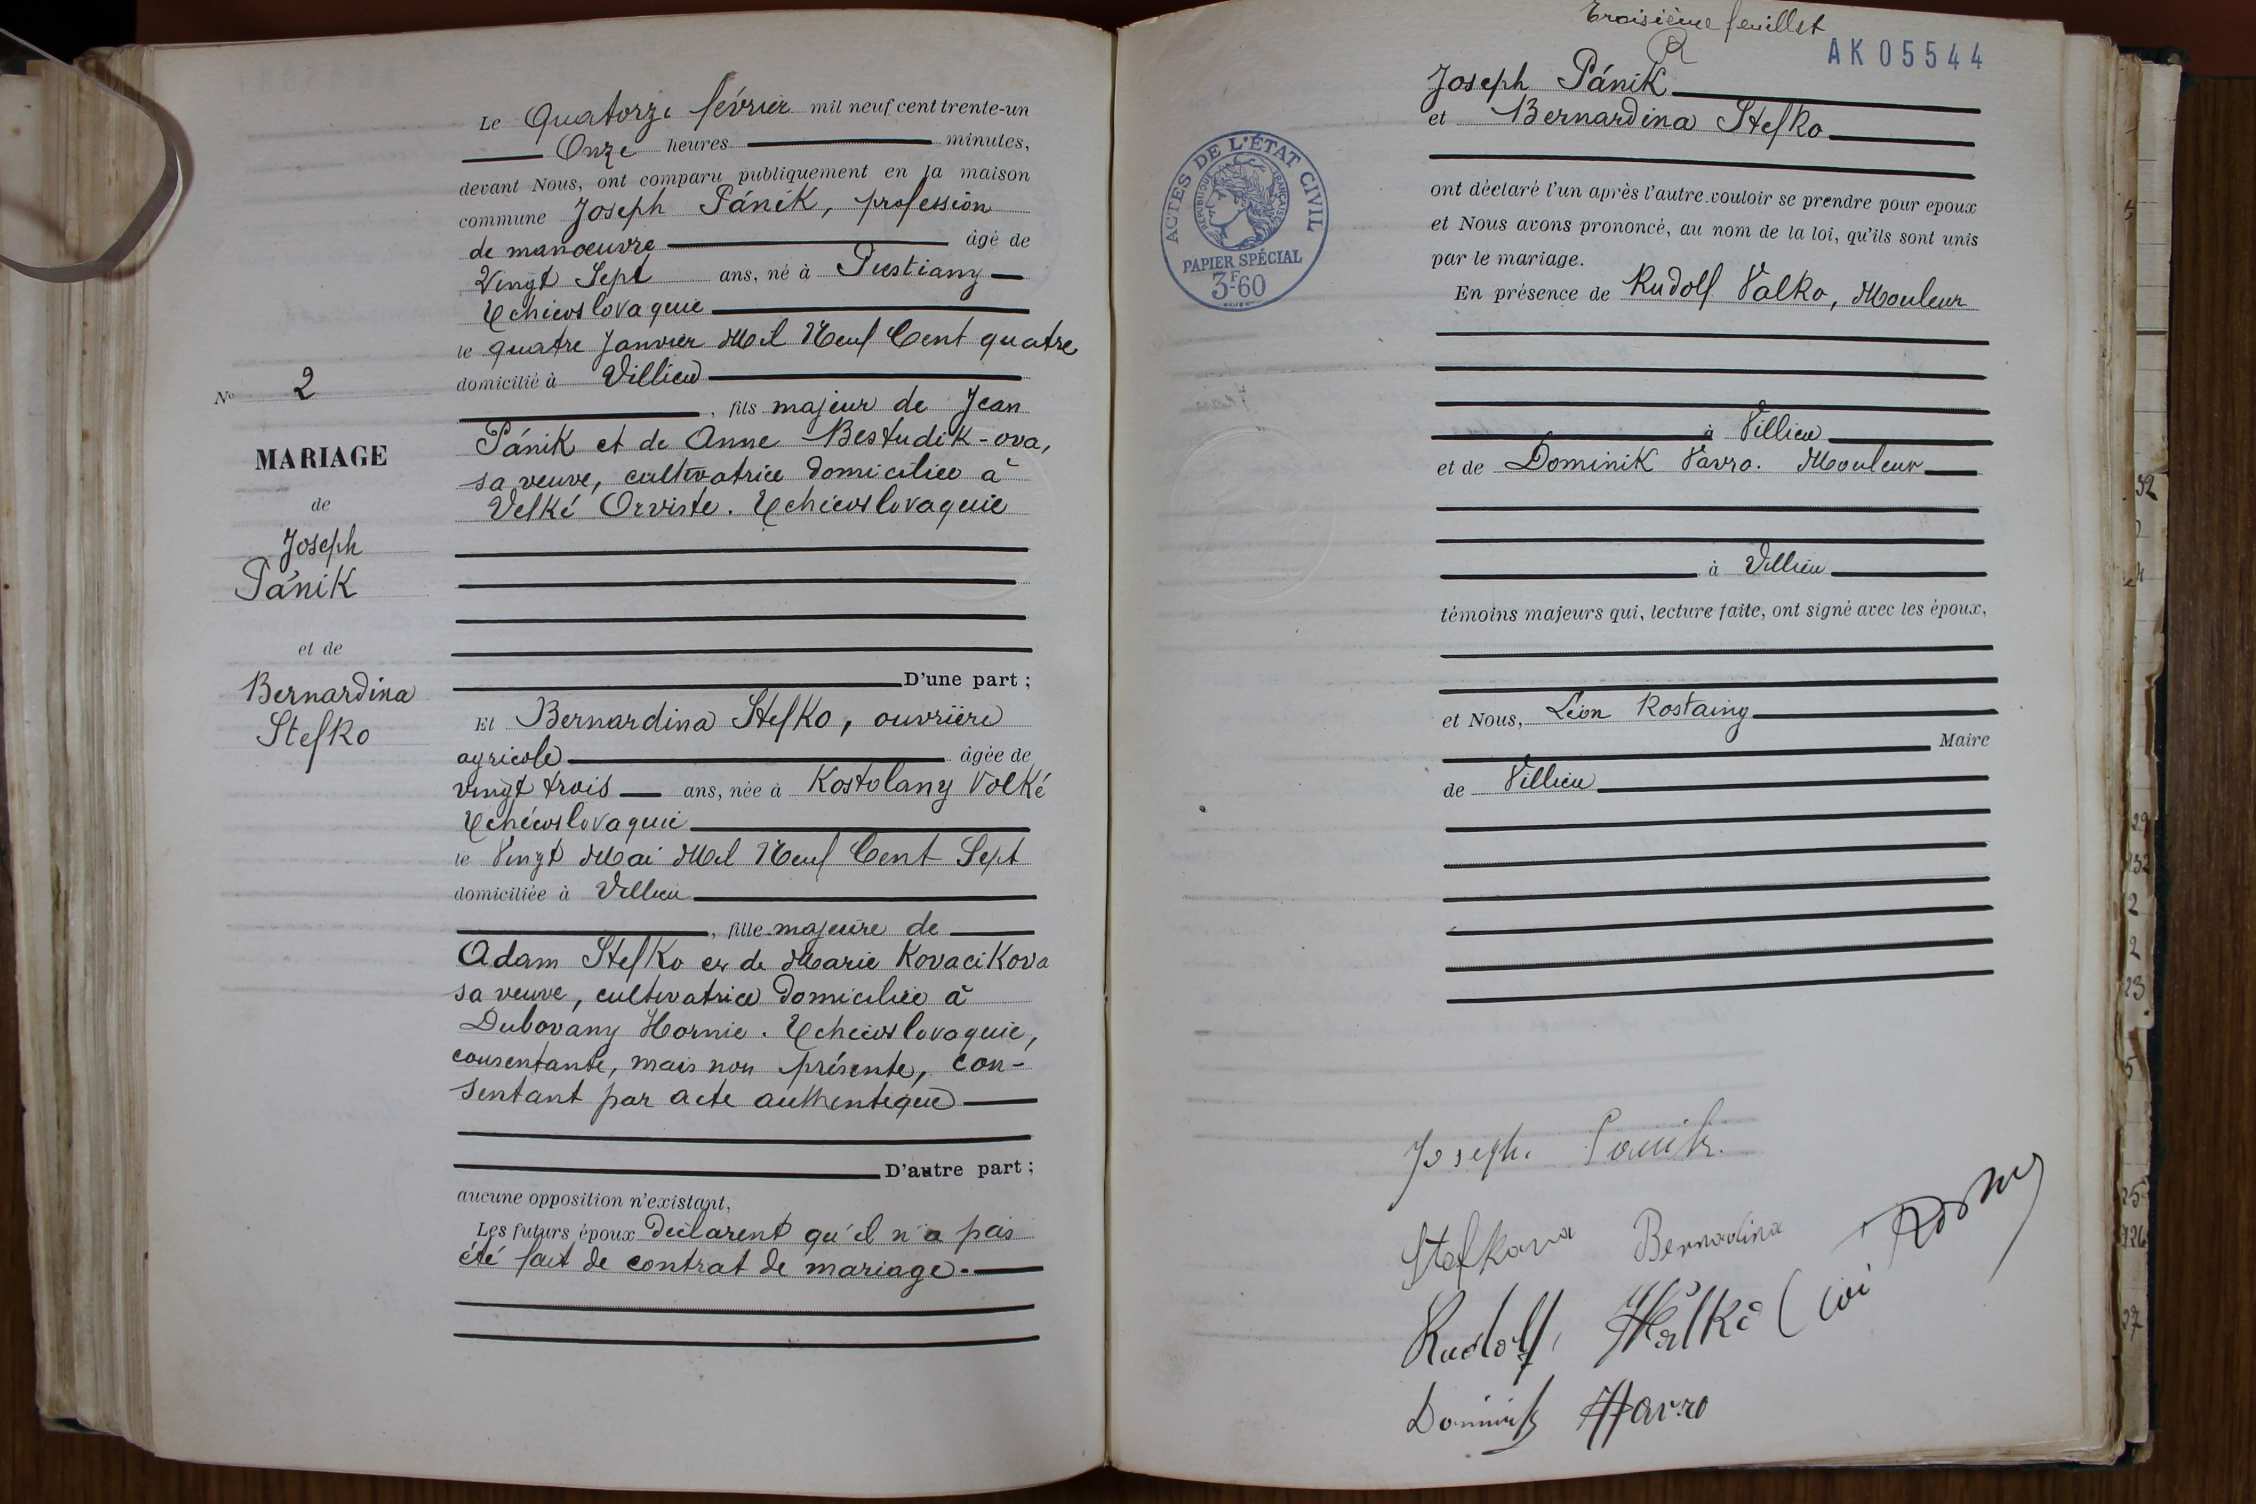 Nº 2
MARIAGE
de
Joseph
Pánik
et de
Bernardina
Stefko
Le Quatorze février mil neuf cent trente-un
Onze heures minutes,
devant Nous, ont comparu publiquement en la maison
commune Joseph Pánik, profession
de manœuvre âgé de
Vingt Sept ans, né à Piestiany
Tchécoslovaquie
le quatre Janvier Mil Neuf Cent quatre
domicilié à Villieu
, fils majeur de Jean
Pánik et de Anne Bestudik-ova,
sa veuve, cultivatrice domiciliée à
Velké Orviste. Tchécoslovaquie
D'une part ;
Et Bernardina Stefko, ouvrière
agricole âgée de
vingt trois ans, née à Kostolany Volké
Tchécoslovaquie
le Vingt Mai Mil Neuf Cent Sept
domiciliée à Villieu
, fille majeure de
Adam Stefko et de Marie Kovacikova
sa veuve, cultivatrice domiciliée à
Dubovány Hornie. Tchécoslovaquie,
consentante, mais non présente, con-
sentant par acte authentique
D'autre part ;
aucune opposition n'existant,
Les futurs époux déclarent qu'il n'a pas
été fait de contrat de mariage.
Troisième feuillet
AK05544
Joseph Pánik
et Bernardina Stefko
ACTES DE L'ÉTAT CIVIL
RÉPUBLIQUE FRANÇAISE
PAPIER SPÉCIAL
3F60
ont déclaré l'un après l'autre vouloir se prendre pour epoux
et Nous avons prononcé, au nom de la loi, qu'ils sont unis
par le mariage.
En présence de Rudolf Valko, Mouleur
à Villieu
et de Dominik Vavro. Mouleur
à Villieu
témoins majeurs qui, lecture faite, ont signé avec les époux,
et Nous, Léon Rostaing
Maire
de Villieu
Joseph Panik.
Stefkova Bernardina
Rudolf
Dominik Wavro